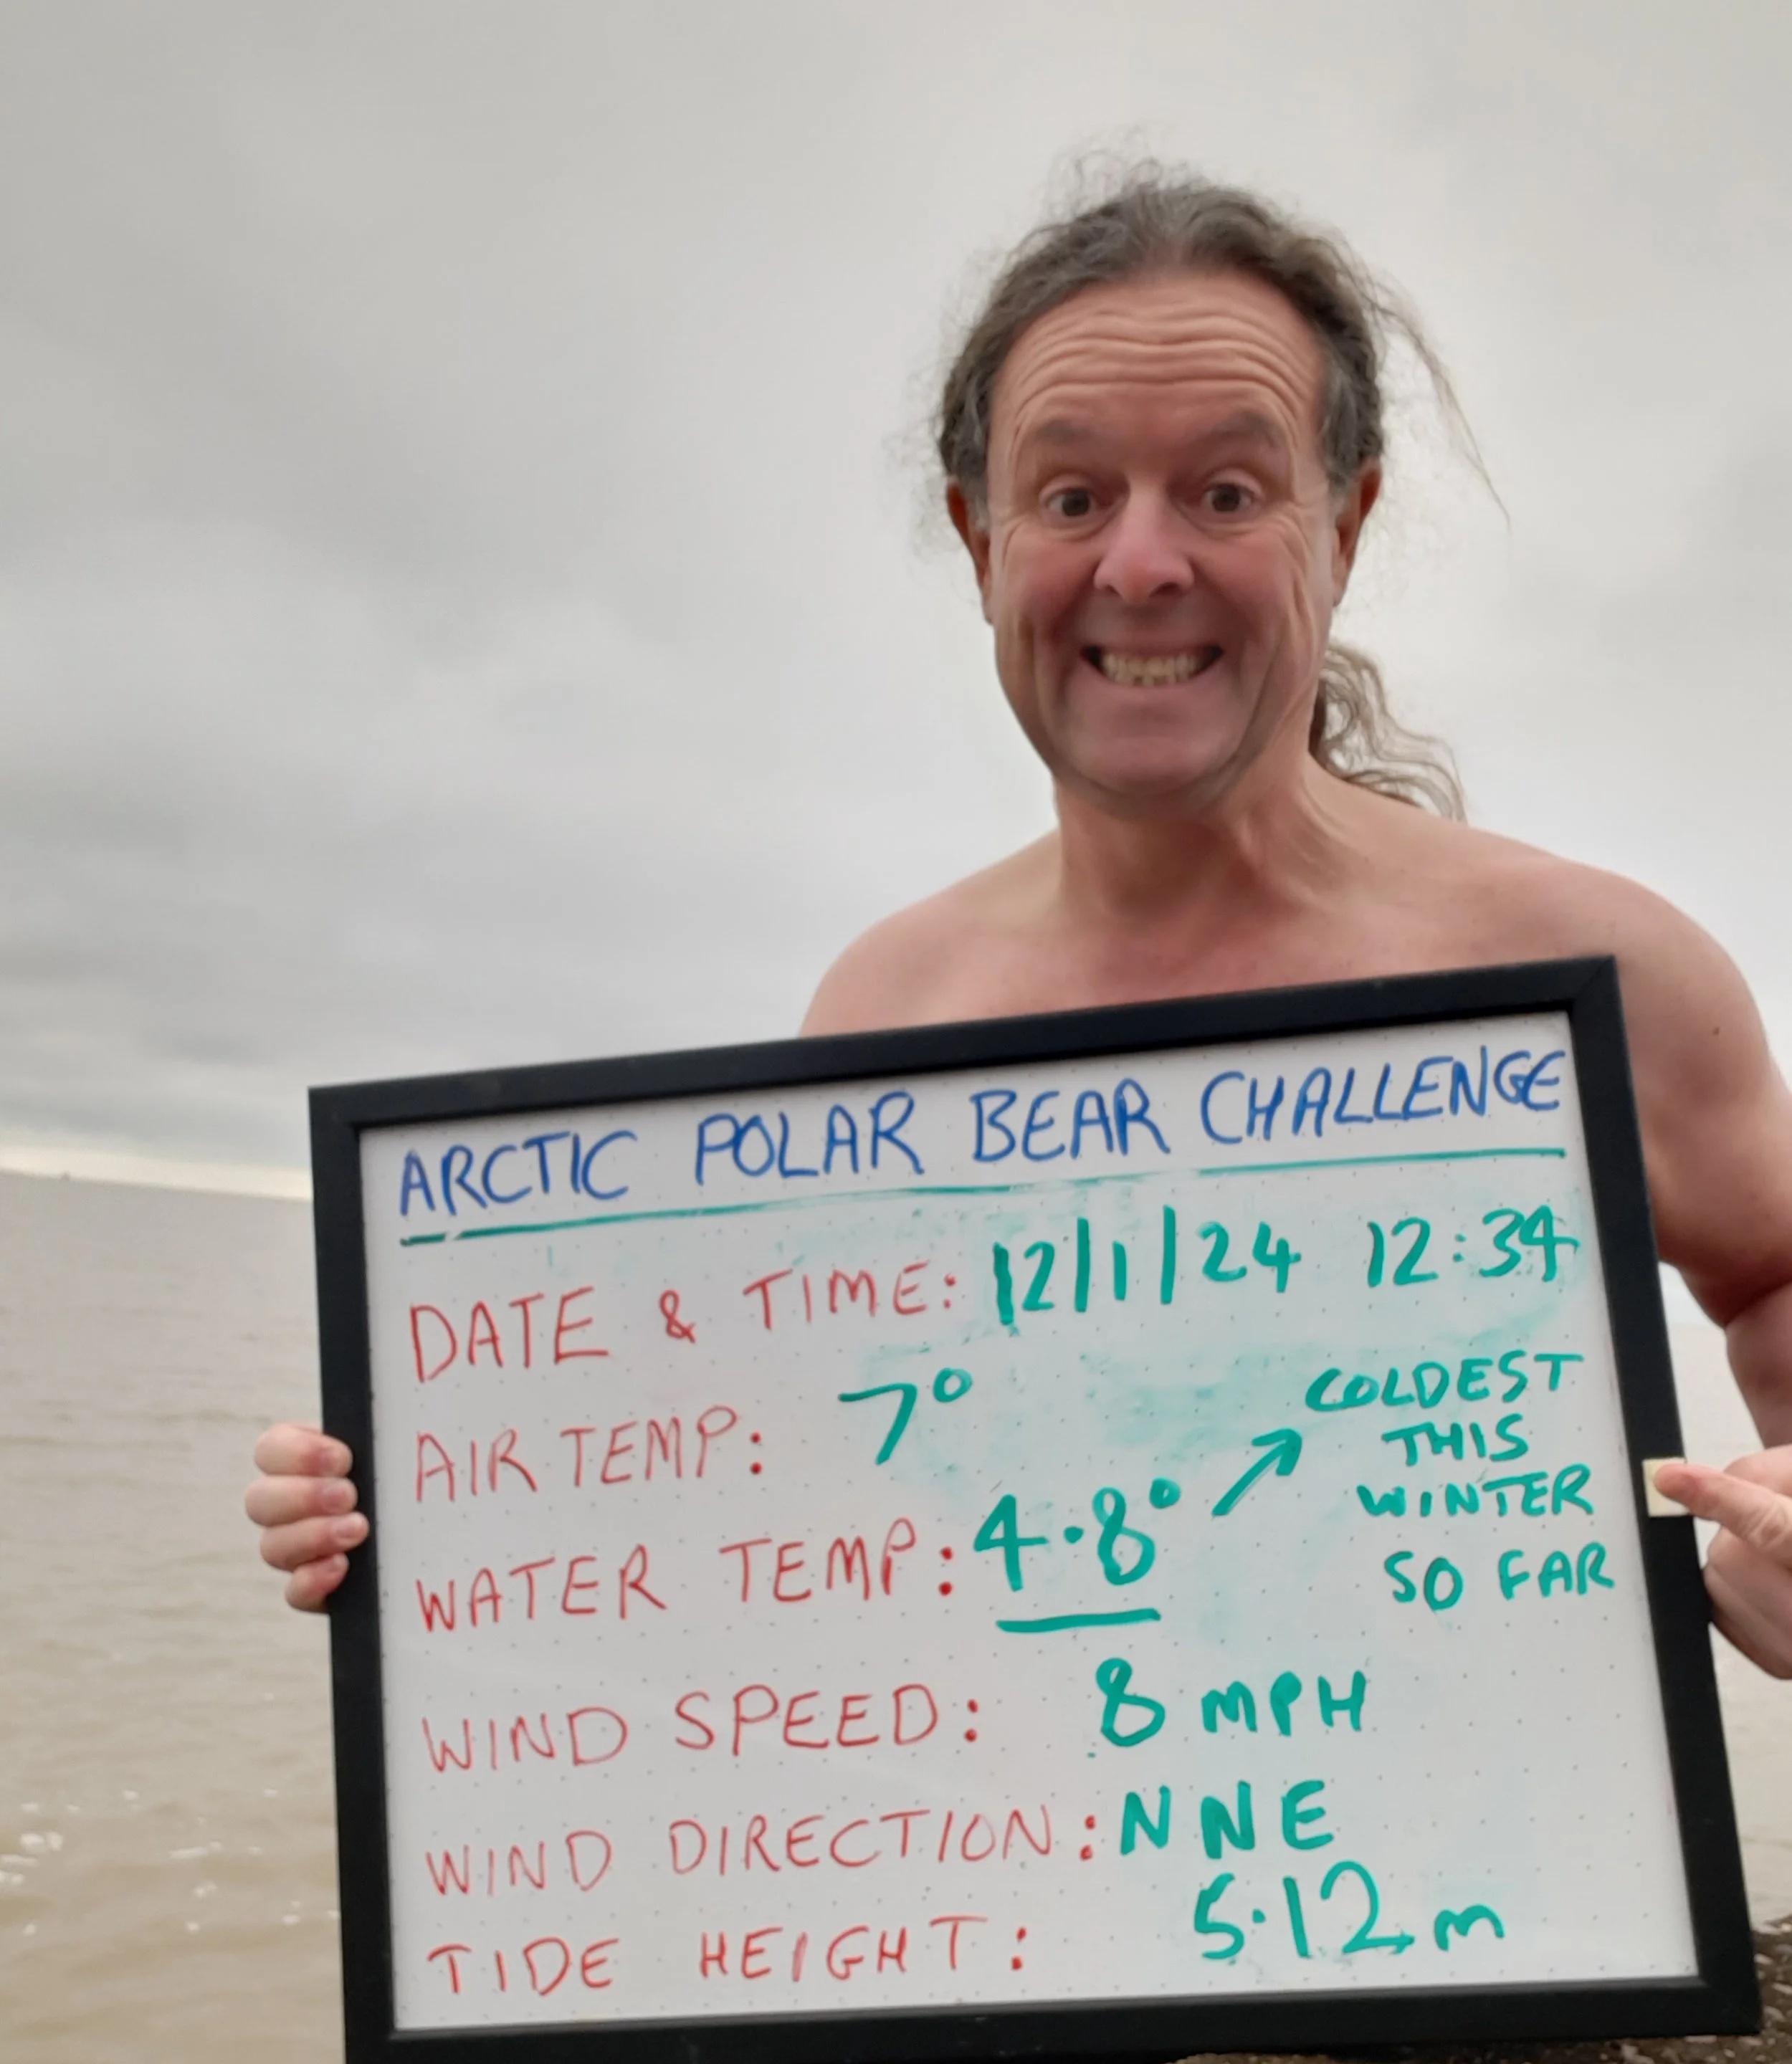 ARCTIC POLAR BEAR CHALLENGE
DATE & TIME: 12/1/24 12:34
AIR TEMP: 7°
WATER TEMP: 4.8°
COLDEST
THIS
WINTER
SO FAR
WIND SPEED: 8 MPH
WIND DIRECTION: NNE
TIDE HEIGHT: 5.12m